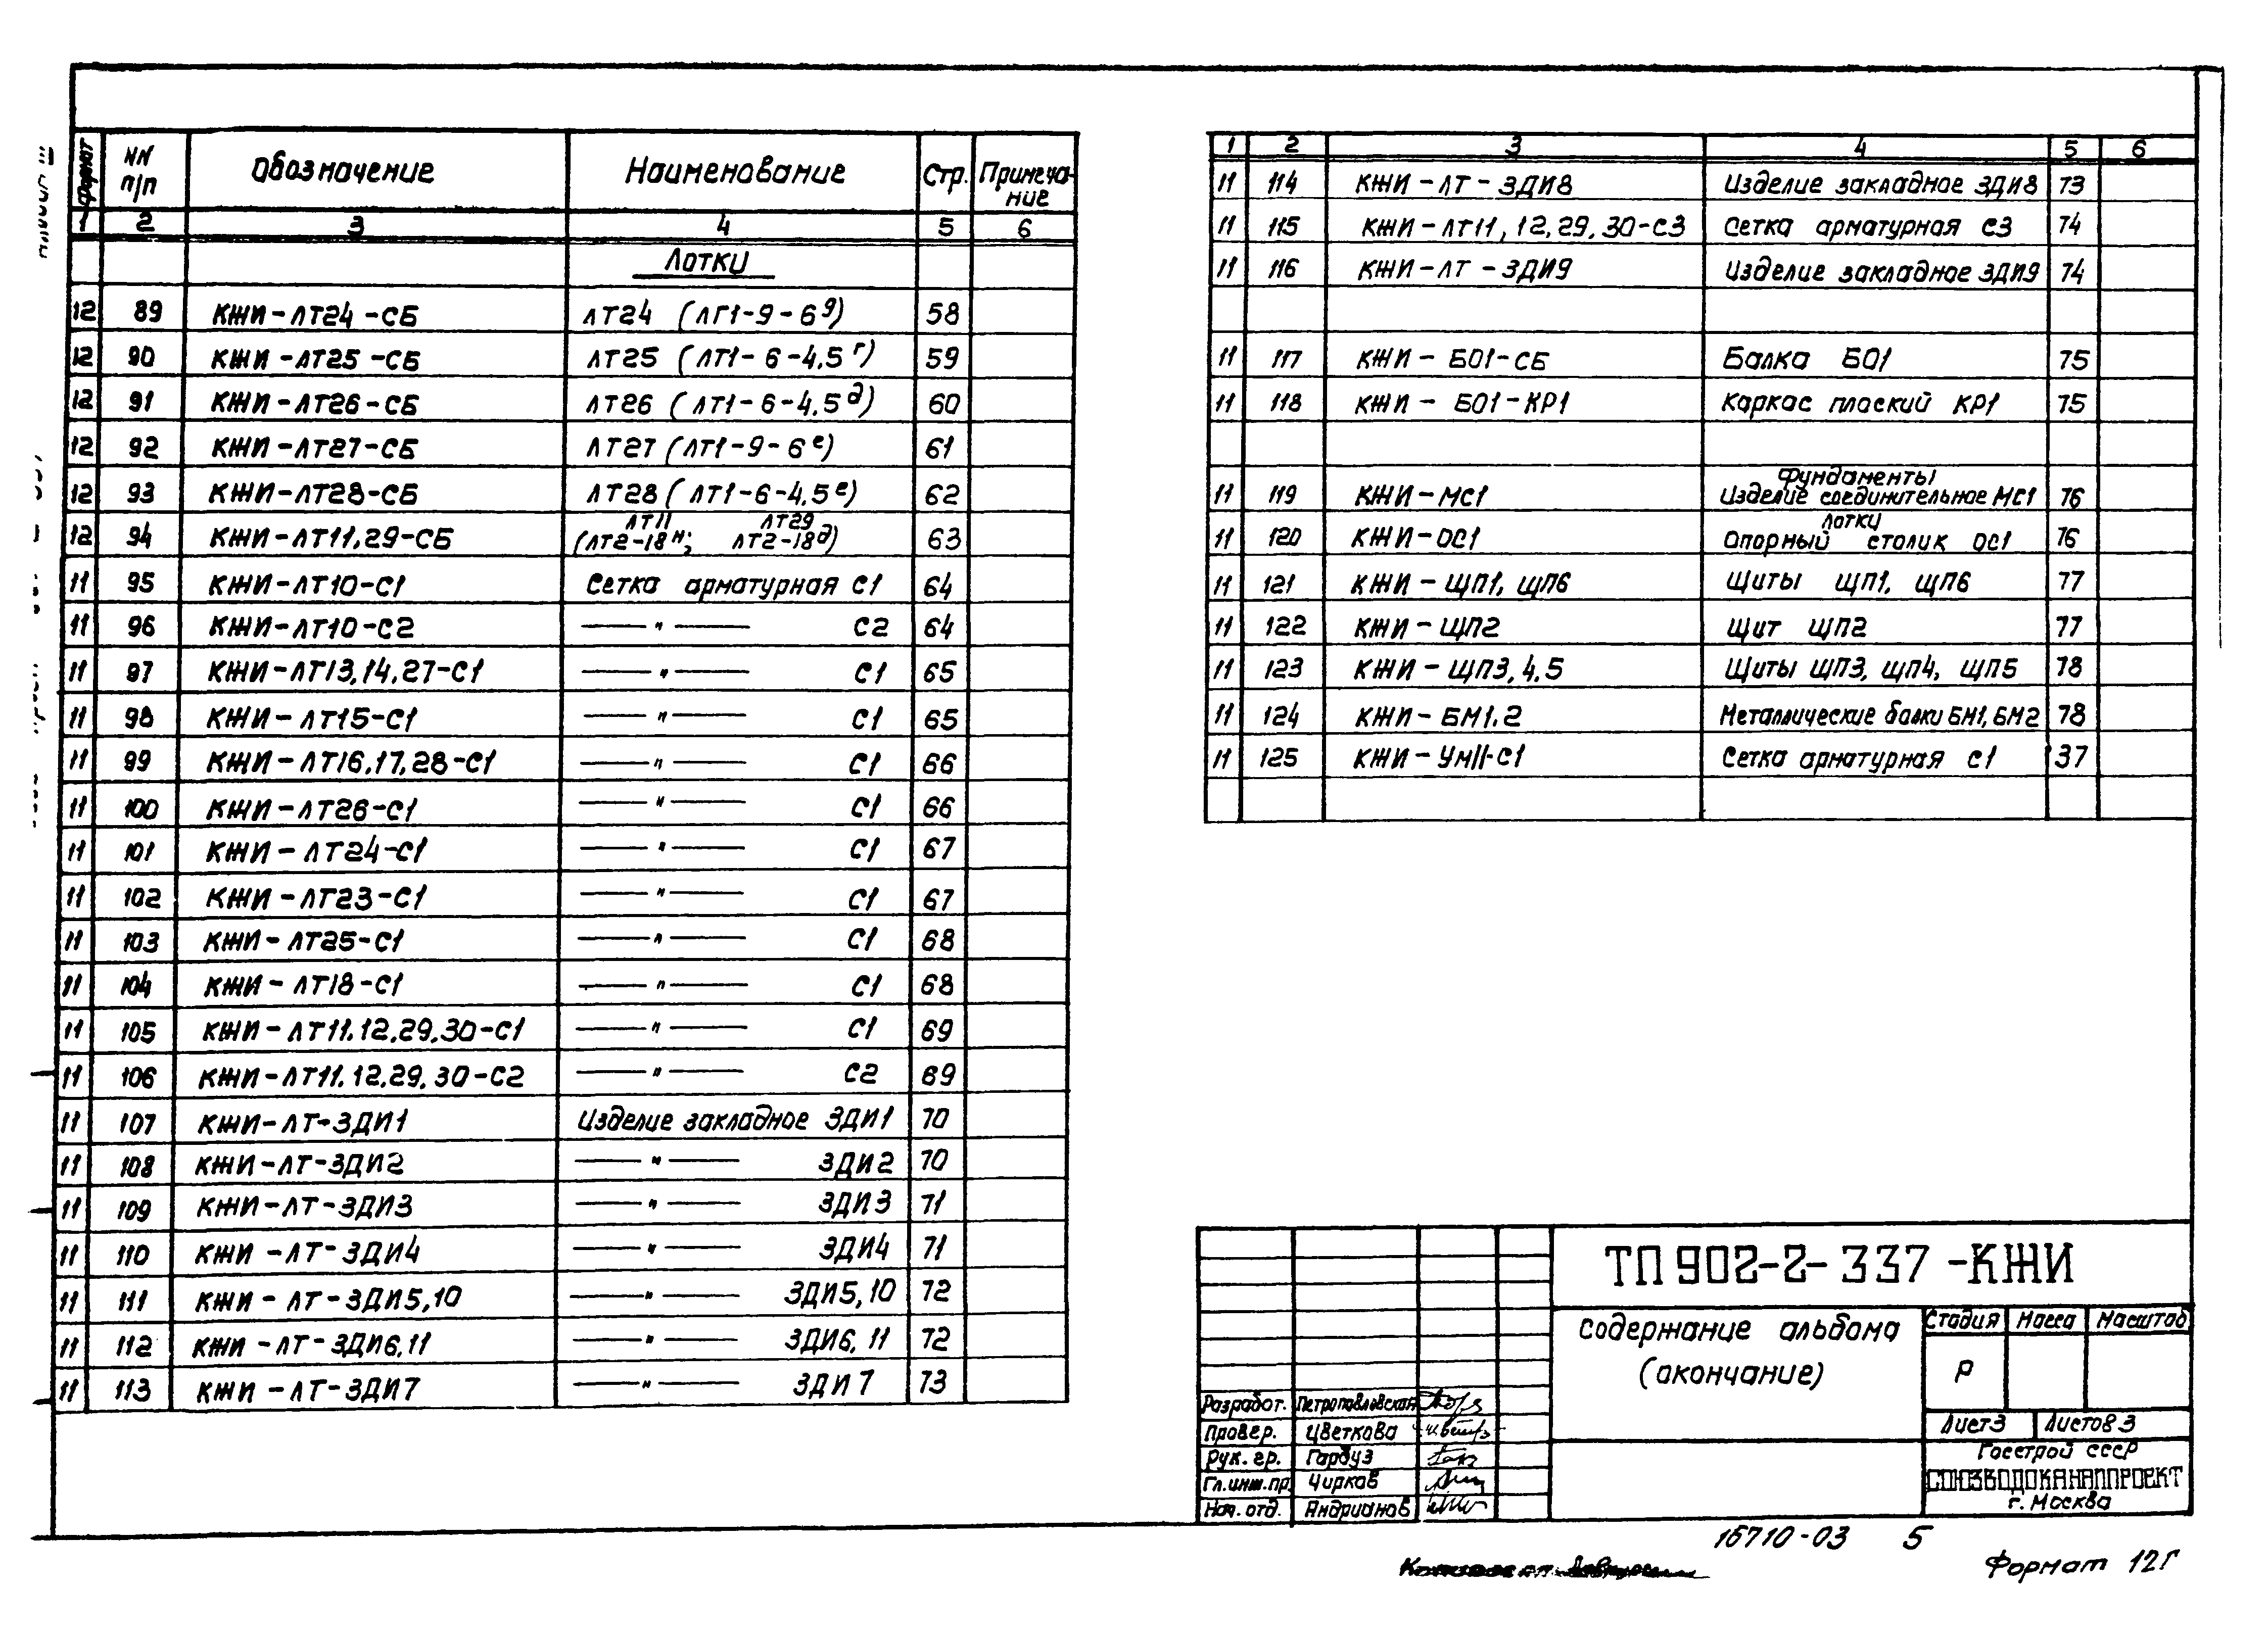 Альбом III
Формат | NN п/п | Обозначение | Наименование | Стр. | Примеча-ние
1 | 2 | 3 | 4 | 5 | 6
Лотки
12 | 89 | КЖИ-ЛТ24-СБ | ЛТ24 (ЛГ1-9-6д) | 58
12 | 90 | КЖИ-ЛТ25-СБ | ЛТ25 (ЛТ1-6-4,5г) | 59
12 | 91 | КЖИ-ЛТ26-СБ | ЛТ26 (ЛТ1-6-4,5д) | 60
12 | 92 | КЖИ-ЛТ27-СБ | ЛТ27 (ЛТ1-9-6е) | 61
12 | 93 | КЖИ-ЛТ28-СБ | ЛТ28 (ЛТ1-6-4,5е) | 62
12 | 94 | КЖИ-ЛТ11,29-СБ | ЛТ11 (ЛТ2-18н; ЛТ29 ЛТ2-18д) | 63
11 | 95 | КЖИ-ЛТ10-С1 | Сетка арматурная С1 | 64
11 | 96 | КЖИ-ЛТ10-С2 | —"— С2 | 64
11 | 97 | КЖИ-ЛТ13,14,27-С1 | —"— С1 | 65
11 | 98 | КЖИ-ЛТ15-С1 | —"— С1 | 65
11 | 99 | КЖИ-ЛТ16,17,28-С1 | —"— С1 | 66
11 | 100 | КЖИ-ЛТ26-С1 | —"— С1 | 66
11 | 101 | КЖИ-ЛТ24-С1 | —"— С1 | 67
11 | 102 | КЖИ-ЛТ23-С1 | —"— С1 | 67
11 | 103 | КЖИ-ЛТ25-С1 | —"— С1 | 68
11 | 104 | КЖИ-ЛТ18-С1 | —"— С1 | 68
11 | 105 | КЖИ-ЛТ11.12.29.30-С1 | —"— С1 | 69
11 | 106 | КЖИ-ЛТ11.12.29.30-С2 | —"— С2 | 69
11 | 107 | КЖИ-ЛТ-ЗДИ1 | Изделие закладное ЗДИ1 | 70
11 | 108 | КЖИ-ЛТ-ЗДИ2 | —"— ЗДИ2 | 70
11 | 109 | КЖИ-ЛТ-ЗДИ3 | —"— ЗДИ3 | 71
11 | 110 | КЖИ-ЛТ-ЗДИ4 | —"— ЗДИ4 | 71
11 | 111 | КЖИ-ЛТ-ЗДИ5,10 | —"— ЗДИ5,10 | 72
11 | 112 | КЖИ-ЛТ-ЗДИ6,11 | —"— ЗДИ6,11 | 72
11 | 113 | КЖИ-ЛТ-ЗДИ7 | —"— ЗДИ7 | 73
1 | 2 | 3 | 4 | 5 | 6
11 | 114 | КЖИ-ЛТ-ЗДИ8 | Изделие закладное ЗДИ8 | 73
11 | 115 | КЖИ-ЛТ11,12,29,30-С3 | Сетка арматурная С3 | 74
11 | 116 | КЖИ-ЛТ-ЗДИ9 | Изделие закладное ЗДИ9 | 74
11 | 117 | КЖИ-БО1-СБ | Балка БО1 | 75
11 | 118 | КЖИ-БО1-КР1 | Каркас плоский КР1 | 75
Фундаменты
11 | 119 | КЖИ-МС1 | Изделие соединительное МС1 | 76
Лотки
11 | 120 | КЖИ-ОС1 | Опорный столик ОС1 | 76
11 | 121 | КЖИ-ЩП1, ЩП6 | Щиты ЩП1, ЩП6 | 77
11 | 122 | КЖИ-ЩП2 | Щит ЩП2 | 77
11 | 123 | КЖИ-ЩП3,4,5 | Щиты ЩП3, ЩП4, ЩП5 | 78
11 | 124 | КЖИ-БМ1.2 | Металлические балки БМ1, БМ2 | 78
11 | 125 | КЖИ-Ум11-С1 | Сетка арматурная С1 | 37
ТП 902-2-337-КЖИ
Содержание альбома
(окончание)
Стадия | Масса | Масштаб
Р
Лист 3 | Листов 3
Госстрой СССР
СОЮЗВОДОКАНАЛПРОЕКТ
г. Москва
Разработ. Петропавловская
Провер. Цветкова
Рук. гр. Гарбуз
Гл. инж. пр. Чирков
Нач. отд. Андрианов
16710-03 5
Формат 12Г